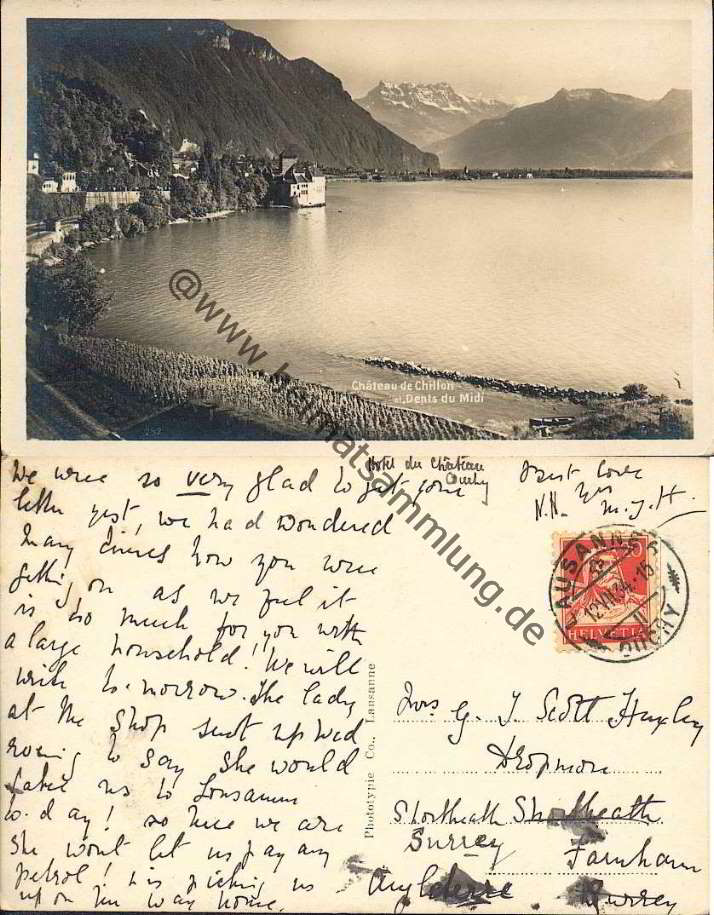 Château de Chillon
et Dents du Midi
@www.heimatsammlung.de
Hotel du Château
Ouchy
Best Love
Yrs
N.H. M.J.H.
We were so very glad to get your
letter yest, we had wondered
many times how you were
getting on as we feel it
is so much for you with
a large household! We will
write to-morrow. The lady
at the shop sent up Wed
evening to say she would
take us to Lausanne
to-day! So nice we are
she won't let us pay any
petrol! & is picking us
up on her way home.
Phototypie Co., Lausanne
LAUSANNE
12.VII.34.-15
OUCHY
HELVETIA
Mrs G. J. Scott Huxley
Shortheath Shortheath
Surrey Farnham
Angleterre Surrey